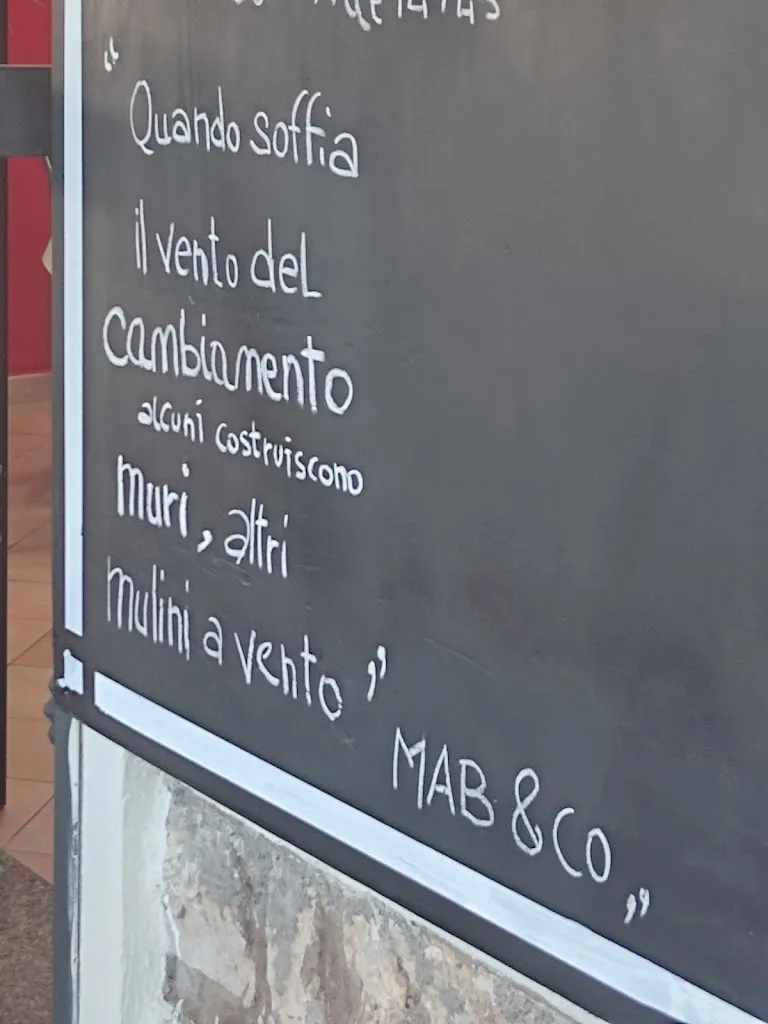 "
Quando soffia
il vento del
cambiamento
alcuni costruiscono
muri, altri
mulini a vento"
MAB & CO "